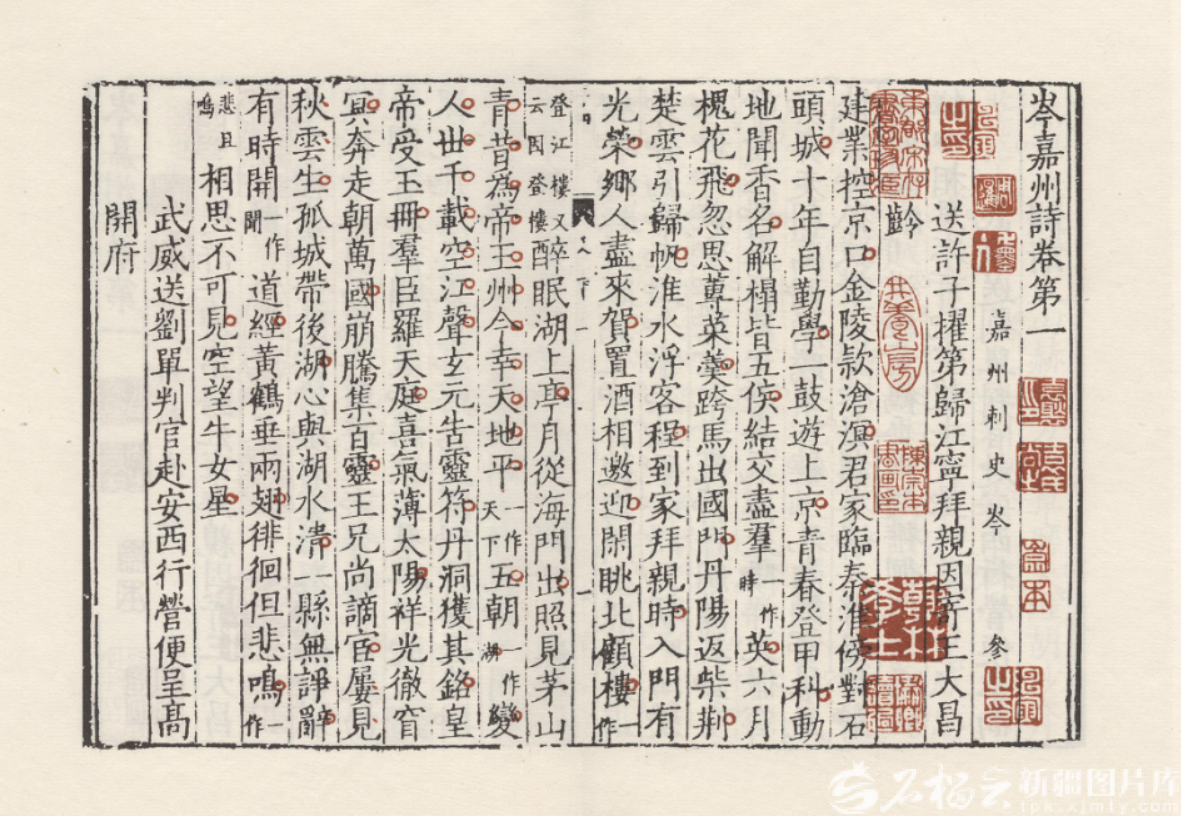 岑嘉州詩卷第一
嘉州刺史岑參
送許子擢第歸江寧拜親因寄王大昌
齡
建業控京口金陵欵滄溟君家臨秦淮傍對石
頭城十年自勤學一鼓遊上京青春登甲科動
地聞香名解榻皆五侯結交盡羣一作時英六月
槐花飛忽思蓴菜羹跨馬出國門丹陽返柴荆
楚雲引歸帆淮水浮客程到家拜親時入門有
光榮鄉人盡來賀置酒相邀迎閑眺北顧樓一作
登江樓又云因登樓醉眠湖上亭月從海門出照見茅山
青昔為帝王州今幸天地平一作天下五朝一作湖變
人世千載空江聲玄元告靈符丹洞獲其銘皇
帝受玉冊羣臣羅天庭喜氣薄太陽祥光徹窅
冥奔走朝萬國崩騰集百靈王兄尚謫宦屢見
秋雲生孤城帶後湖心與湖水清一縣無諍辭
有時開一作聞道經黃鶴垂兩翅徘徊但悲鳴一作
悲且鳴相思不可見空望牛女星
武威送劉單判官赴安西行營便呈高
開府
石榴云新疆图片库
tpk.xjmty.com